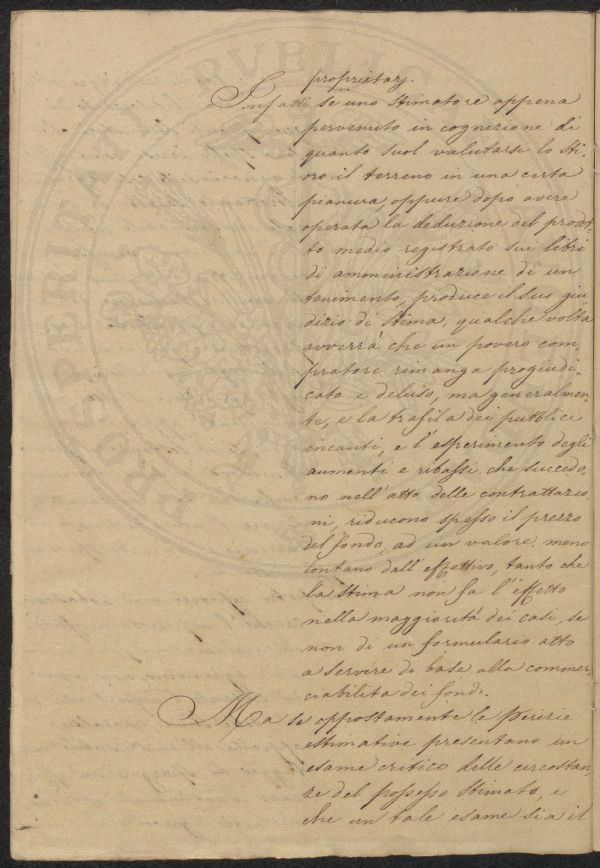 proprietarj.
Infatti se uno stimatore appena
pervenuto in cognizione di
quanto suol valutarsi lo sti,
oro il terreno in una certa
pianura, oppure dopo avere
operata la deduzione del prodot-
to medio registrato sui libri
di amministrazione di un
tenimento, produce il suo giu-
dizio di stima, qualche volta
avverrà che un povero com,
pratore rimanga pregiudi-
cato e deluso, ma generalmen-
te, e la trafila dei pubblici
incanti, e l'esperimento degli
aumenti e ribassi che succedo-
no nell'atto delle contrattazio-
ni, riducono spesso il prezzo
del fondo, ad un valore meno
lontano dall'effettivo, tanto che
la stima non fa l'effetto
nella maggiorità dei casi, se
non di un formulario atto
a servire di base alla commer-
ciabilita dei fondi.
Ma se oppostamente le Perizie
estimative presentano un
esame critico delle circostan-
ze del possesso stimato, e
che un tale esame sia il
PROSPERITATI PUBLIC